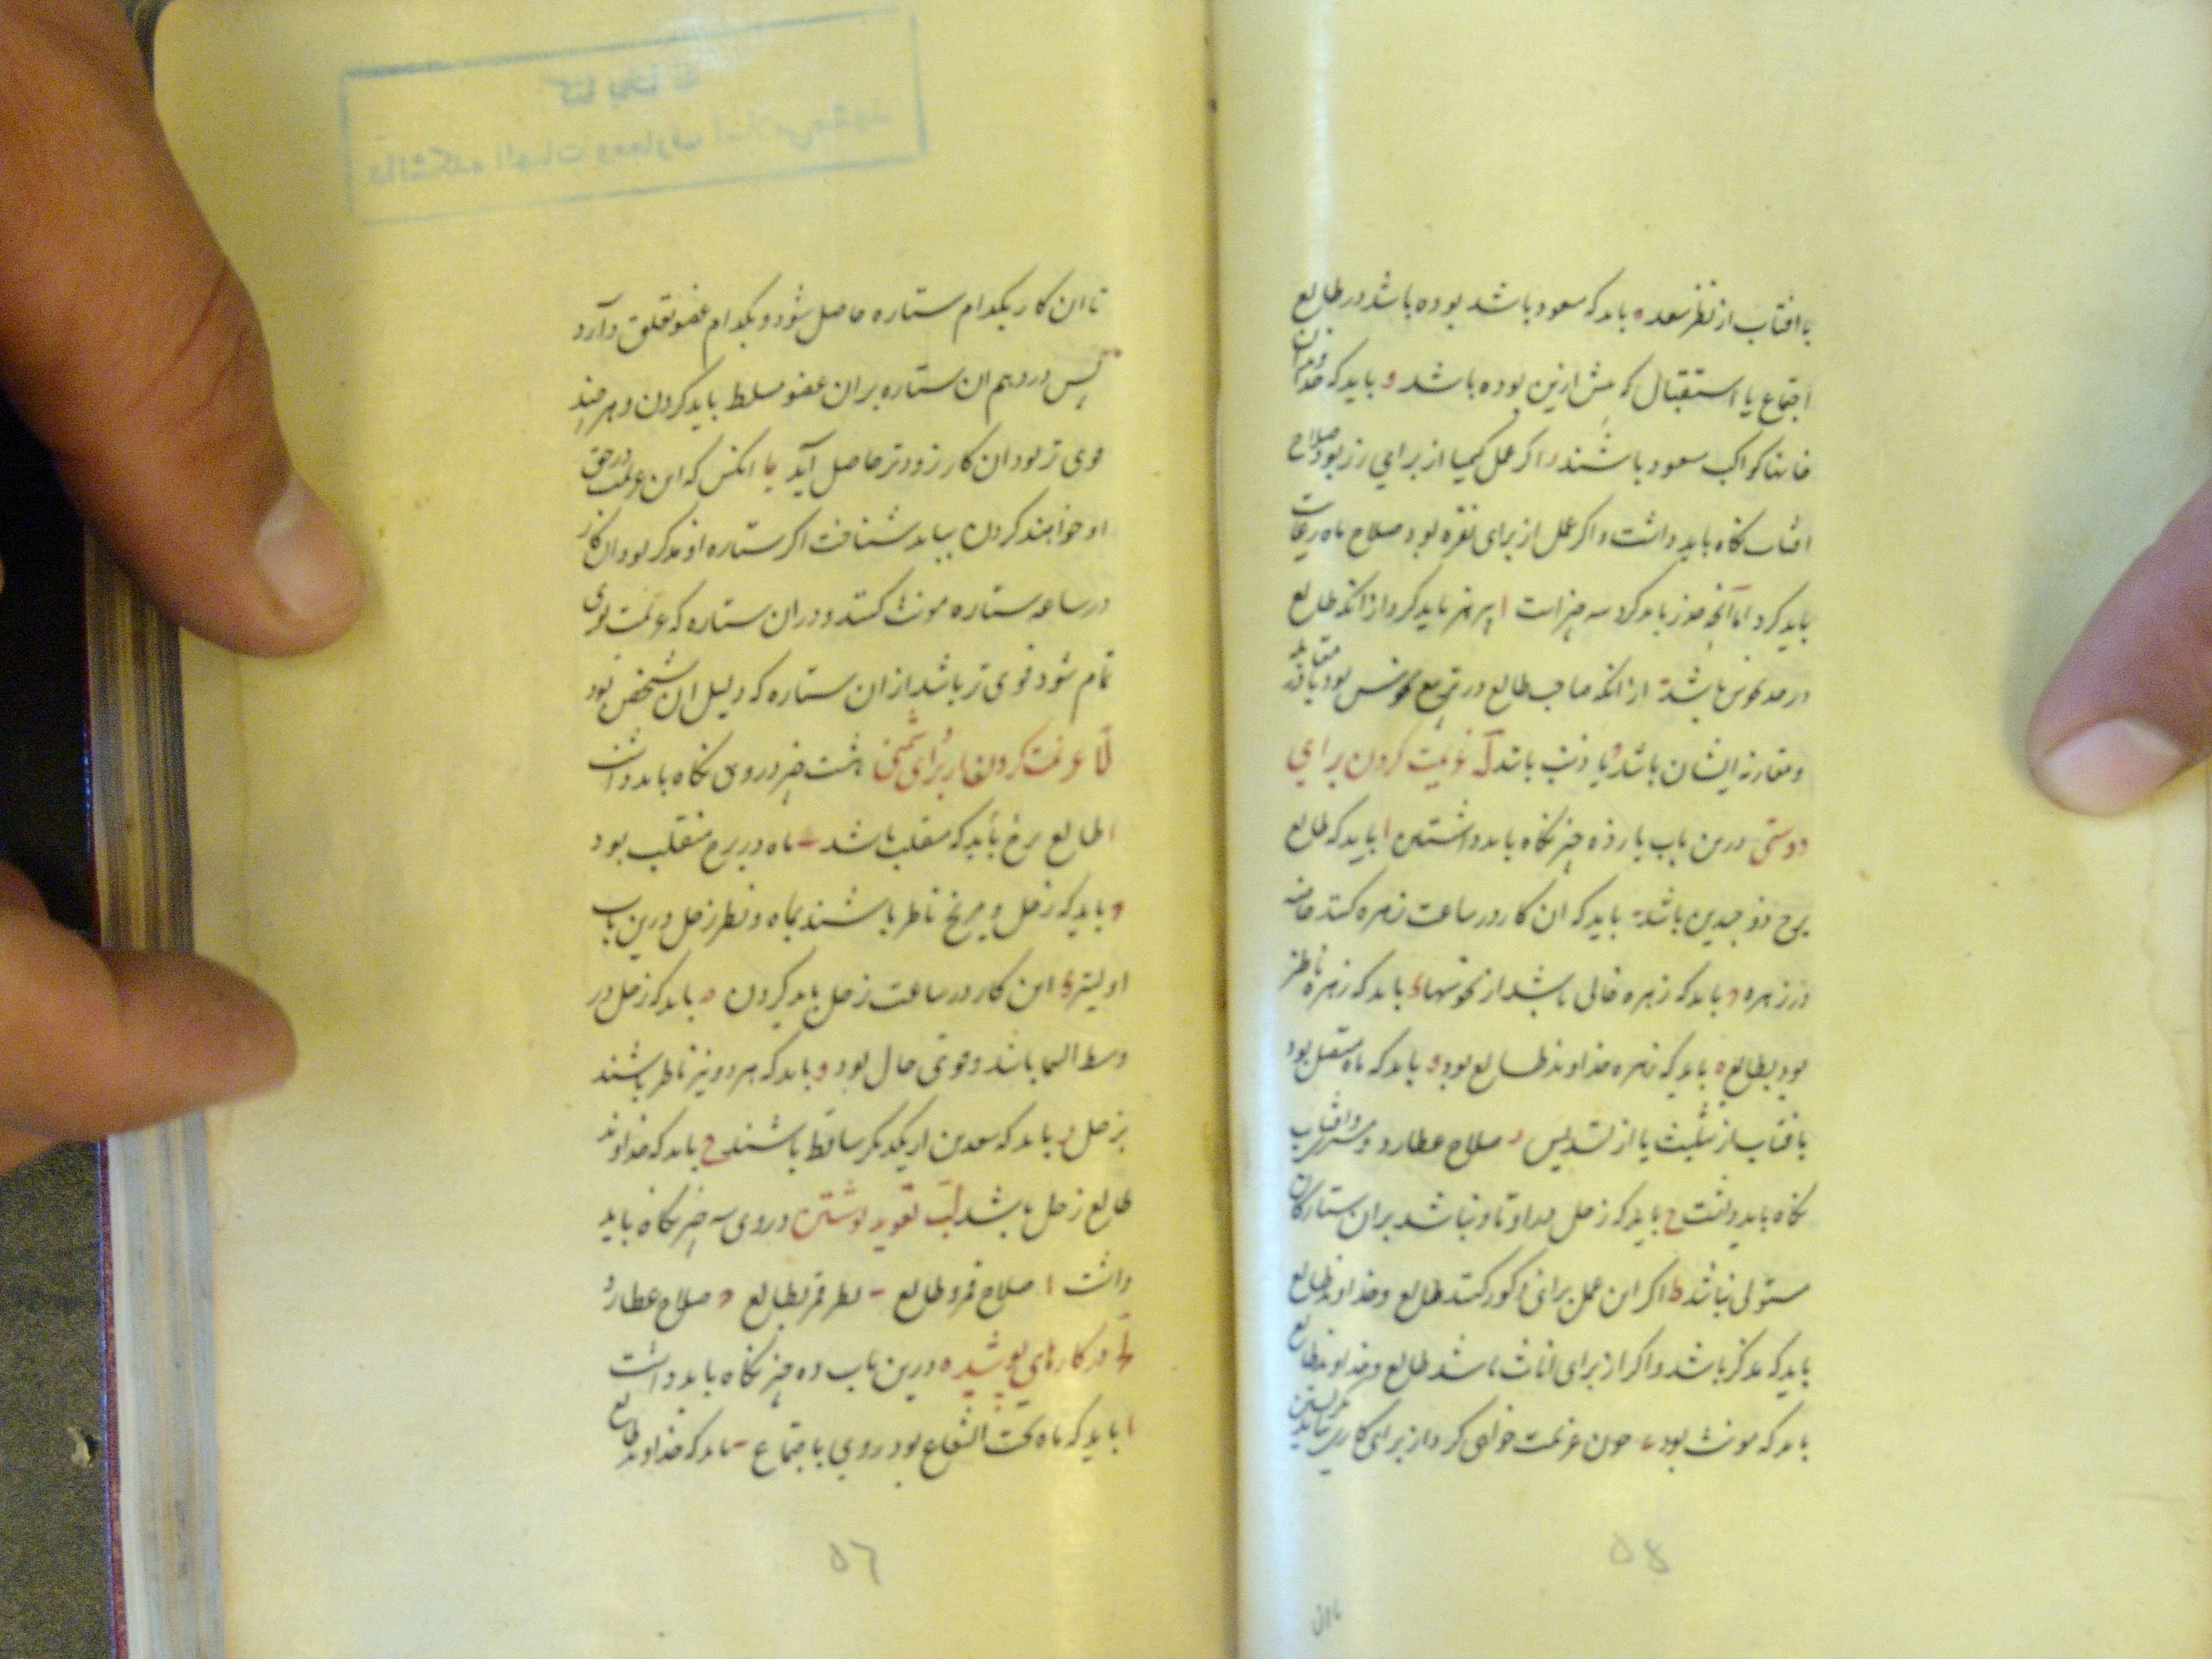 با افتاب از نظر سعد ه باید که سعود باشد بوده باشد در طالع
اجتماع یا استقبال که پیش ازین بوده باشد و باید که خداوندان
خانها کواکب سعود باشند ر اکر عمل کیمیا از برای زر بود صلاح
افتاب نکاه باید داشت و اکر عمل از برای نقره بود صلاح ماه رعایت
باید کرد اما آنچه حذر باید کرد سه چیز است ا پرهیز باید کرد از انکه طالع
در حد نحوس باشد ب از انکه صاحب طالع در تربیع نحوس بود یا در مقابله
و مقارنه ایشان باشد یا ذنب باشد ل عزیمت کردن برای
دوستی درین باب یازده چیز نکاه باید داشتن ا باید که طالع
برج ذو جسدین باشد ب باید که ان کار در ساعت زهره کنند خاصه
در زهره د باید که زهره خالی باشد از نحوستها باید که زهره ناظر
بود بطالع ه باید که زهره خداوند طالع بود و باید که ماه متصل بود
بافتاب از تثلیث یا از تسدیس ر صلاح عطارد و مشتری و افتاب
نکاه باید داشت ح باید که زحل در اوتاد نباشد بران ستارکان
مستولی نباشد ط اکر این عمل برای ذکور کنند طالع و خداوند طالع
باید که مذکر باشد و اکر از برای اناث باشد طالع و خداوند طالع
باید که مونث بود چون عزیمت خواهی کرد از برای کاری نکریستن باید
تا ان
۵۸
تا ان کار بکدام ستاره حاصل شود و بکدام عضو تعلق دارد
پس در وهم ان ستاره بران عضو مسلط باید کردن و هر چند
قوی تر بود ان کار زودتر حاصل آید یا انکس که این عزیمت در حق
او خواهند کردن بباید شناخت اکر ستاره او مذکر بود ان کار
در ساعه ستاره مونث کنند و دران ستاره که عزیمت بوی
تمام شود قوی تر باشد از ان ستاره که دلیل ان شخص بود
لا عزیمت کردن برای دشمنی هشت چیز دروی نکاه باید داشت
ا طالع برج باید که منقلب باشد ب ماه در برج منقلب بود
د باید که زحل و مریخ ناظر باشند بماه و نظر زحل درین باب
اولیتر این کار در ساعت زحل باید کردن ه باید که زحل در
وسط السما باشد و قوی حال بود و باید که هر دو نیز ناظر باشند
بزحل ر باید که سعدین از یکدیکر ساقط باشند ح باید که خداوند
طالع زحل باشد لب تعوید نوشتن دروی سه چیز نکاه باید
داشت ا صلاح قمر و طالع ب نظر قمر بطالع د صلاح عطارد
لج در کارهای پوشیده درین باب ده چیز نکاه باید داشت
ا باید که ماه تحت الشعاع بود روی باجتماع ب باید که خداوند طالع
۵۶